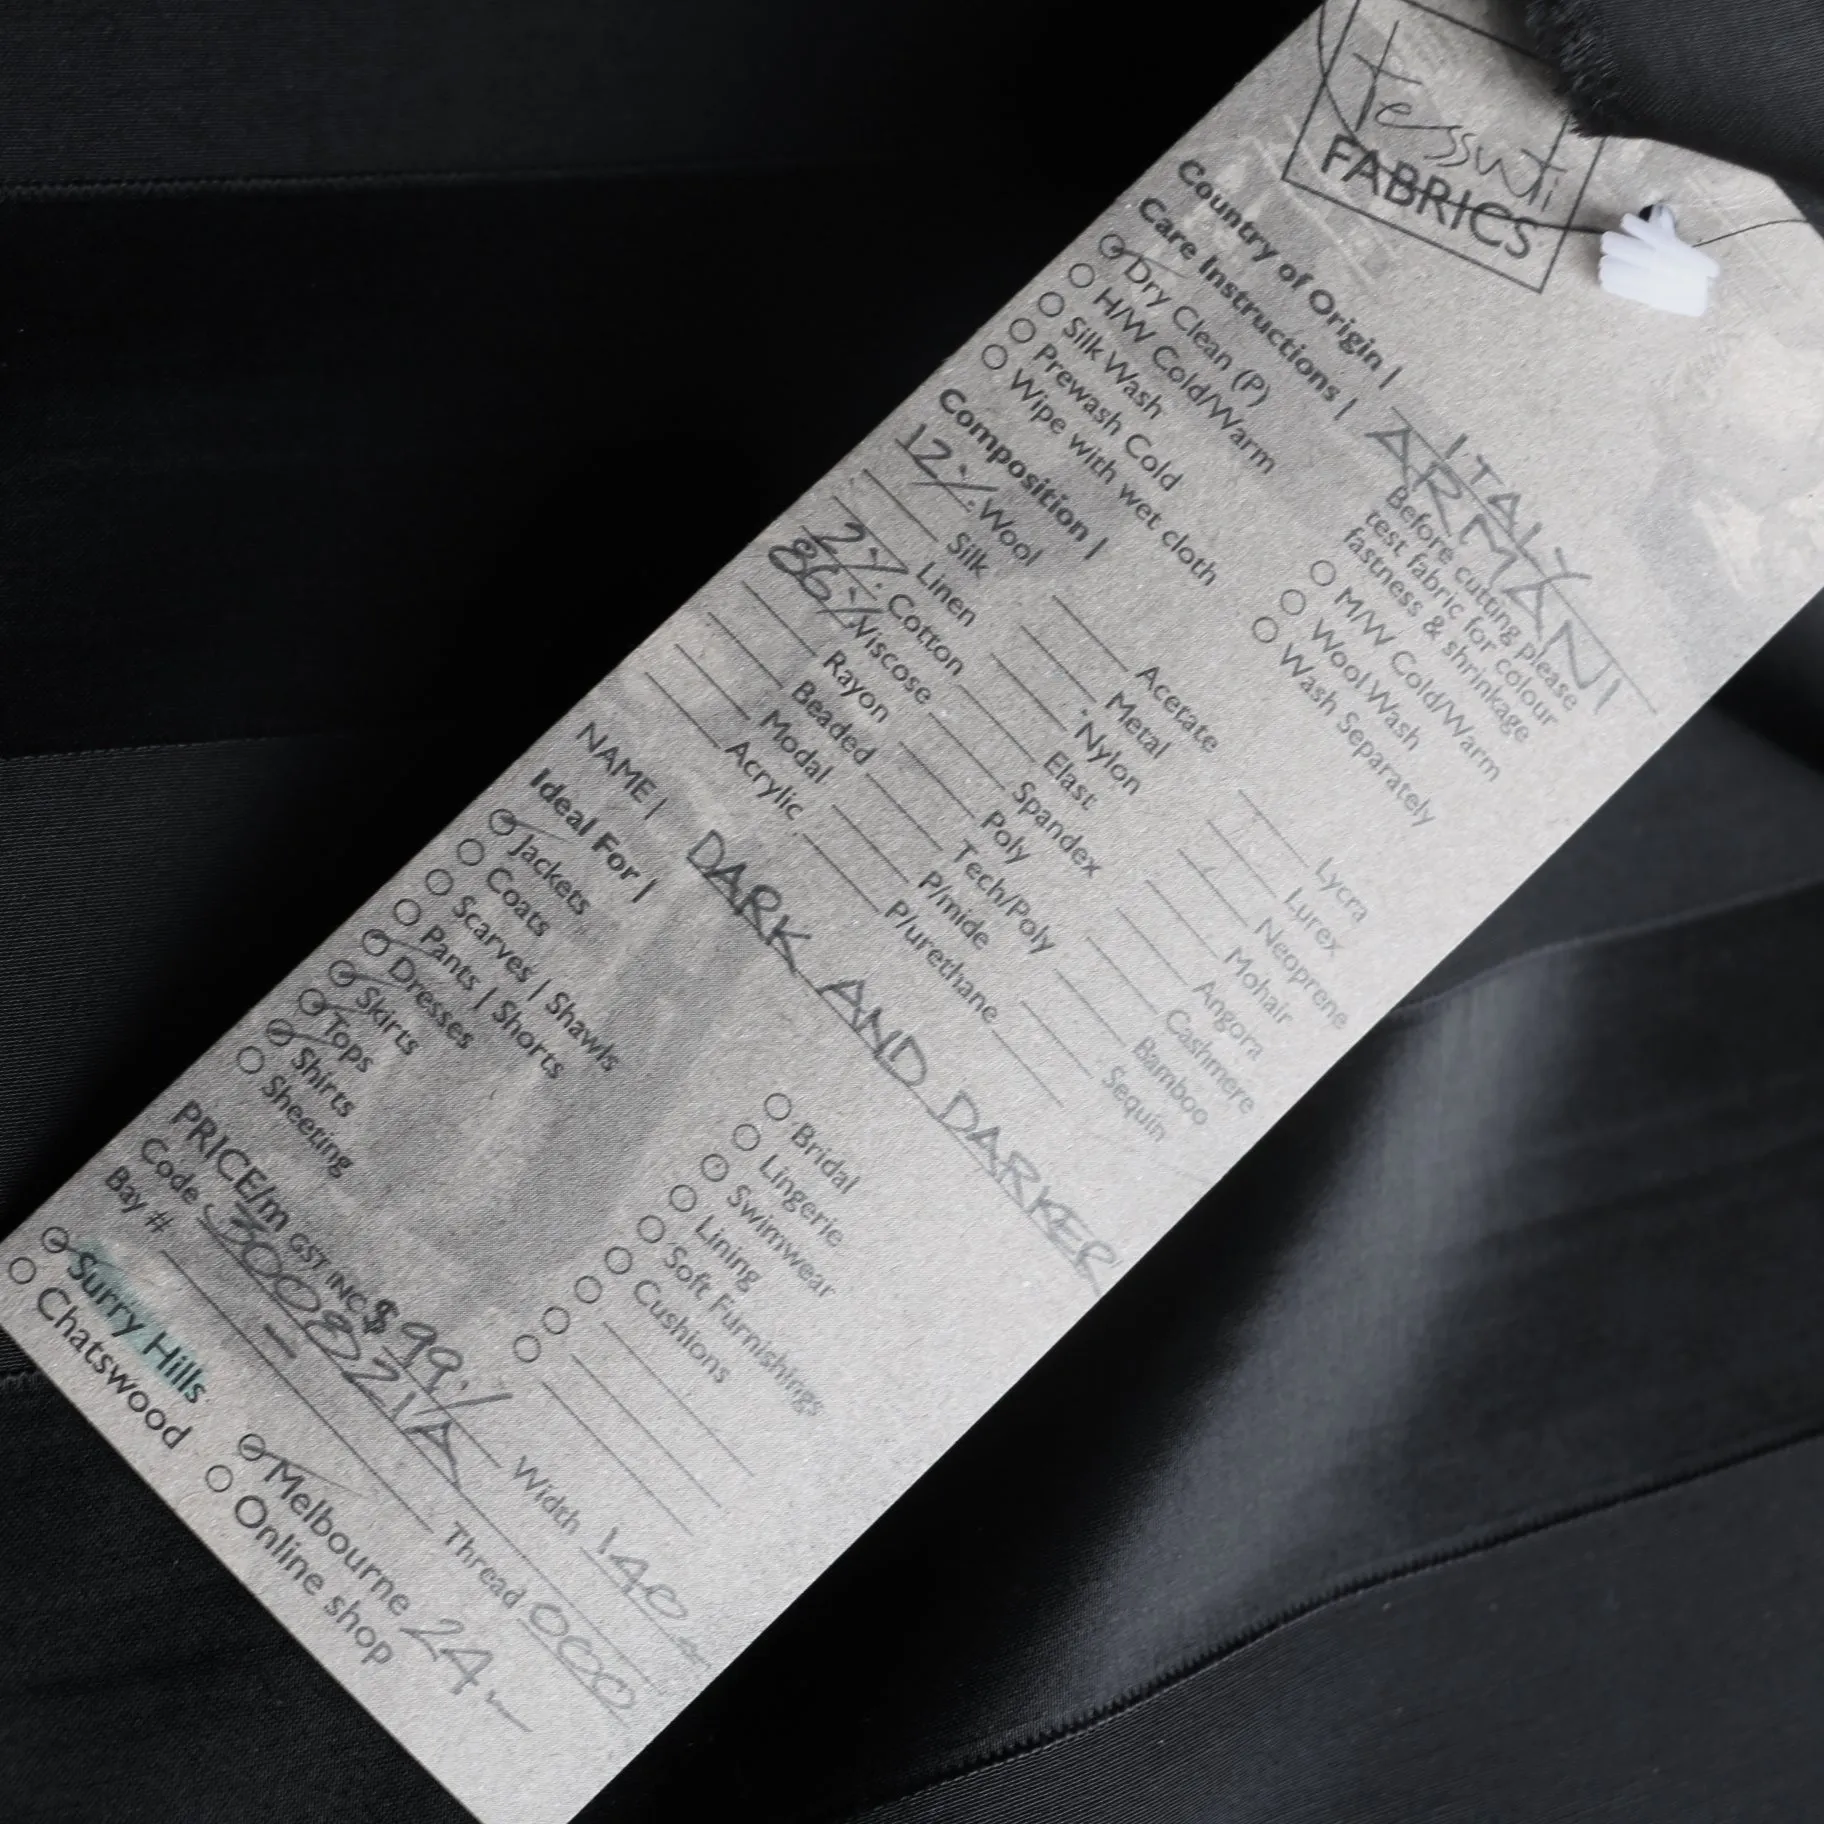 tessuti
FABRICS
Country of Origin | ITALY
Care Instructions | ARMANI
Dry Clean (P)
H/W Cold/Warm
Silk Wash
Prewash Cold
Wipe with wet cloth
Before cutting please
test fabric for colour
fastness & shrinkage
M/W Cold/Warm
Wool Wash
Wash Separately
Composition |
12% Wool
Silk
Linen
2% Cotton
86% Viscose
Rayon
Beaded
Modal
Acrylic
Acetate
Metal
Nylon
Elast
Spandex
Poly
Tech/Poly
P/mide
P/urethane
Lycra
Lurex
Neoprene
Mohair
Angora
Cashmere
Bamboo
Sequin
NAME | DARK AND DARKER
Ideal For |
Jackets
Coats
Scarves | Shawls
Pants | Shorts
Dresses
Skirts
Tops
Shirts
Sheeting
Bridal
Lingerie
Swimwear
Lining
Soft Furnishings
Cushions
PRICE/m GST INC $99./ Width 140
Code 300821A Thread 000
Bay # –
Surry Hills
Chatswood
Melbourne 24
Online shop